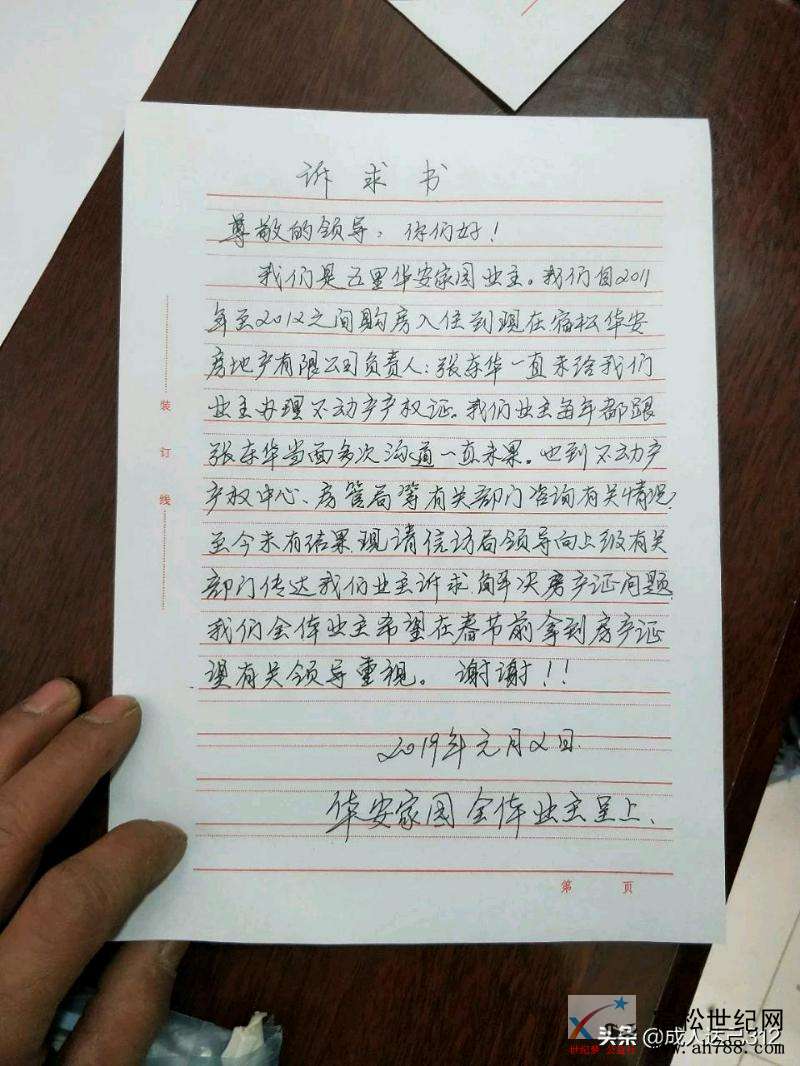 诉求书
尊敬的领导，你们好！
我们是五里华安家园业主。我们自2011
年至2012之间购房入住到现在宿松华安
房地产有限公司负责人：张东华一直未给我们
业主办理不动产产权证。我们业主每年都跟
张东华当面多次沟通一直未果。也到不动产
产权中心、房管局等有关部门咨询有关情况
至今未有结果现请信访局领导向上级有关
部门传达我们业主诉求解决房产证问题
我们全体业主希望在春节前拿到房产证
望有关领导重视。谢谢！！
2019年元月2日
华安家园全体业主呈上、
装
订
线
第 页
世纪
松世纪网
头条@成人
312
www.ah788.com